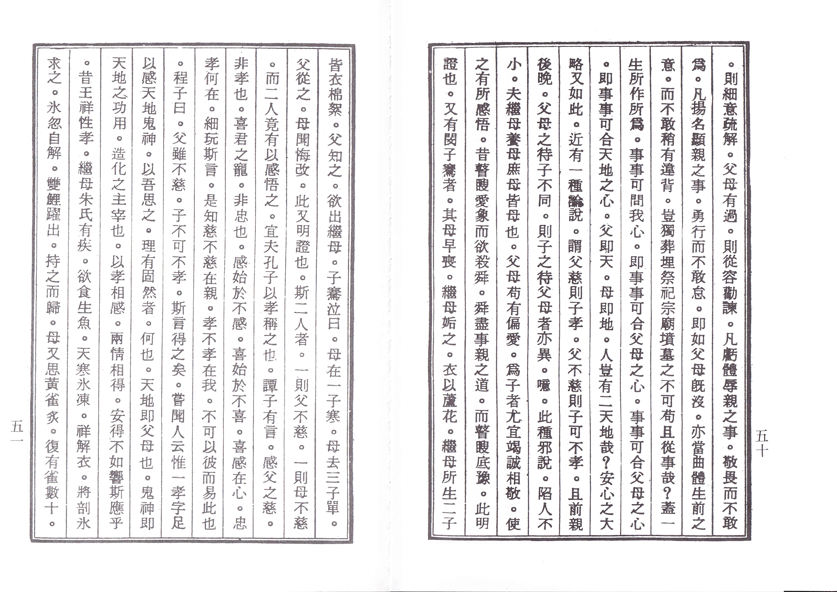 。則細意疏解。父母有過。則從容勸諫。凡虧體辱親之事。敬畏而不敢
為。凡揚名顯親之事。勇行而不敢怠。即如父母既沒。亦當曲體生前之
意。而不敢稍有違背。豈獨葬埋祭祀宗廟墳墓之不可苟且從事哉？蓋一
生所作所為。事事可問我心。即事事可合父母之心。事事可合父母之心
。即事事可合天地之心。父即天。母即地。人豈有二天地哉？安心之大
略又如此。近有一種論說。謂父慈則子孝。父不慈則子可不孝。且前親
後晚。父母之待子不同。則子之待父母者亦異。噫。此種邪說。陷人不
小。夫繼母養母庶母皆母也。父母苟有偏愛。為子者尤宜竭誠相敬。使
之有所感悟。昔瞽瞍愛象而欲殺舜。舜盡事親之道。而瞽瞍底豫。此明
證也。又有閔子騫者。其母早喪。繼母妬之。衣以蘆花。繼母所生二子
五十
皆衣棉絮。父知之。欲出繼母。子騫泣曰。母在一子寒。母去三子單。
父從之。母聞悔改。此又明證也。斯二人者。一則父不慈。一則母不慈
。而二人竟有以感悟之。宜夫孔子以孝稱之也。譚子有言。感父之慈。
非孝也。喜君之寵。非忠也。感始於不感。喜始於不喜。喜感在心。忠
孝何在。細玩斯言。是知慈不慈在親。孝不孝在我。不可以彼而易此也
。程子曰。父雖不慈。子不可不孝。斯言得之矣。嘗聞人云惟一孝字足
以感天地鬼神。以吾思之。理有固然者。何也。天地即父母也。鬼神即
天地之功用。造化之主宰也。以孝相感。兩情相得。安得不如響斯應乎
。昔王祥性孝。繼母朱氏有疾。欲食生魚。天寒氷凍。祥解衣。將剖氷
求之。氷忽自解。雙鯉躍出。持之而歸。母又思黃雀炙。復有雀數十。
五一